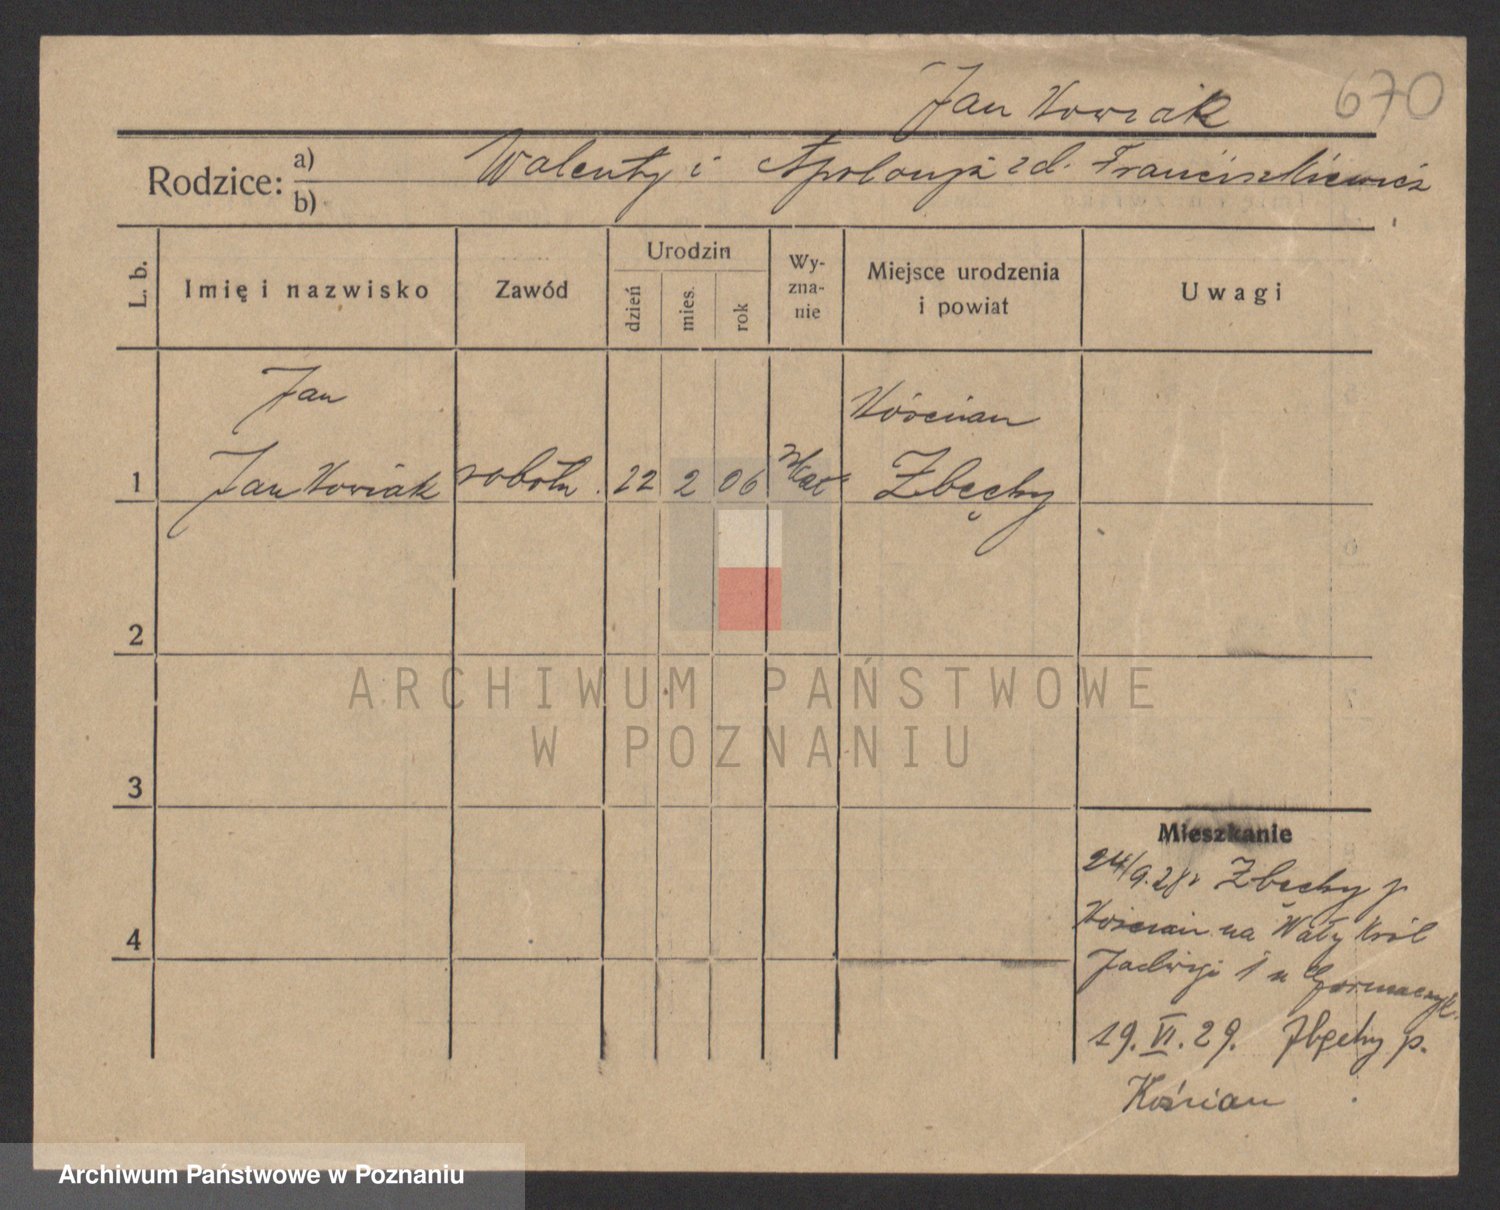 Jan Nowiak 670
Rodzice: a) Walenty i Apolonja zd. Franciszkiewicz
b)
L. b. Imię i nazwisko Zawód Urodzin dzień mies. rok Wy-zna-nie Miejsce urodzenia i powiat Uwagi
Jan Kościan
1 Jan Nowiak robotn. 22 2 06 Zbęchy
2
3
4
Mieszkanie
24/9.28r Zbęchy p
Kościan na Wały Król
Jadwigi 1 u
19.VI.29. Zbęchy p.
Kościan
ARCHIWUM PAŃSTWOWE
W POZNANIU
Archiwum Państwowe w Poznaniu